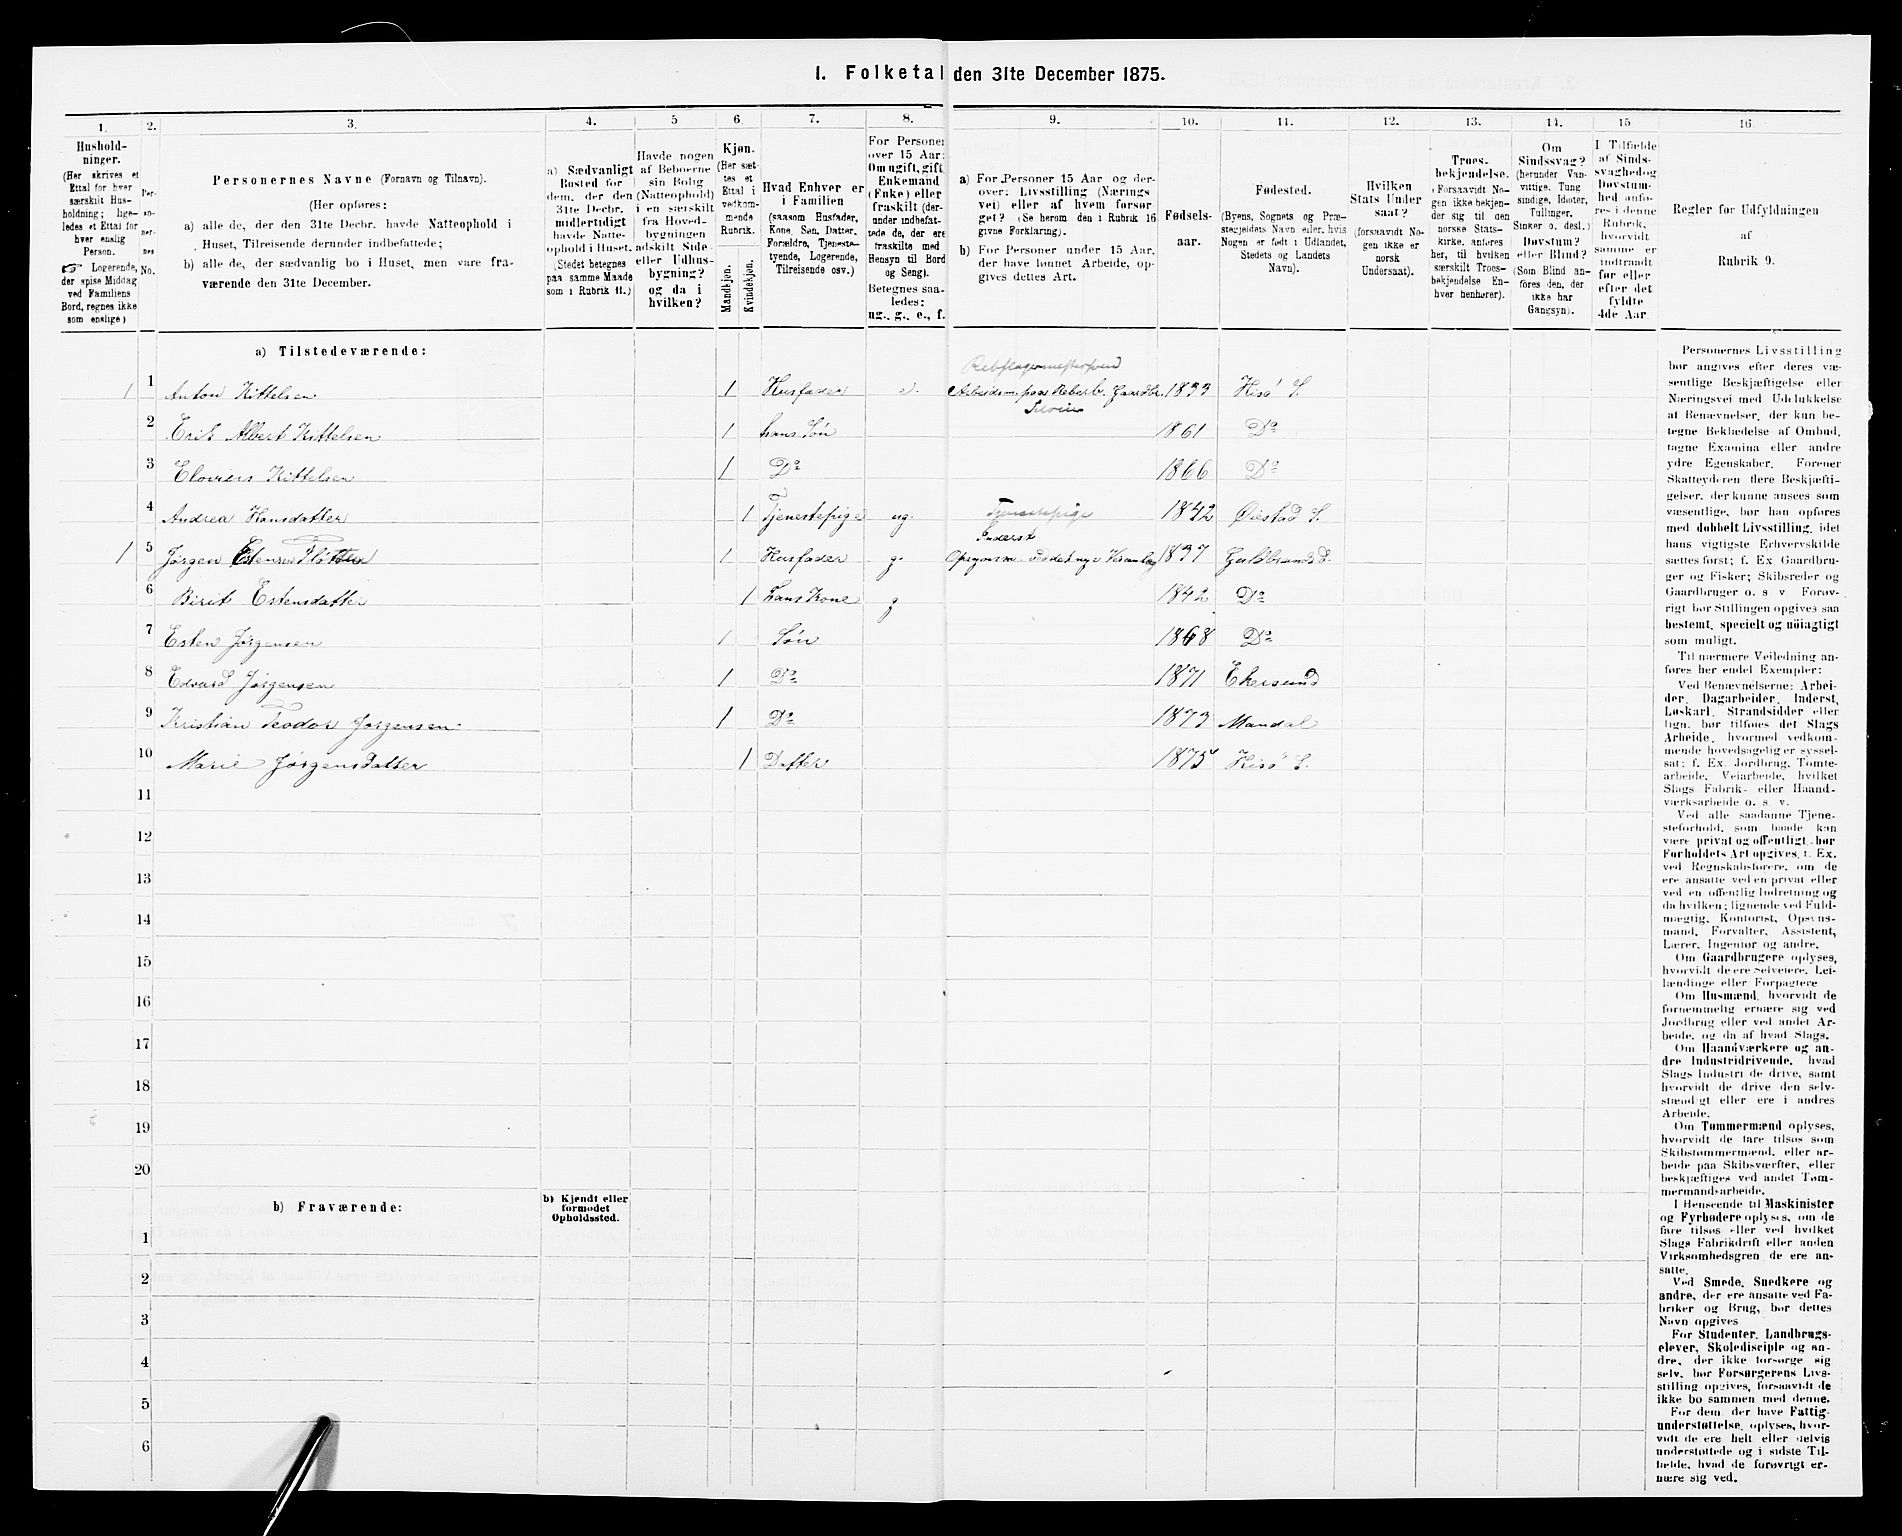 1. Folketal den 31te December 1875.
1. 2. 3. 4. 5 6. 7. 8. 9. 10. 11. 12. 13. 14. 15 16
Hushold-
ninger.
(Her skrives et
Ettal for hver
særskilt Hus-
holdning; lige-
ledes et Ettal for
hver enslig
Person.
Logerende,
der spise Middag
ved Familiens
Bord, regnes ikke
som enslige)
Per-
so-
ner-
nes
No.
Personernes Navne (Fornavn og Tilnavn).
(Her opføres:
a) alle de, der den 31te Decbr. havde Natteophold i
Huset, Tilreisende derunder indbefattede;
b) alle de, der sædvanlig bo i Huset, men vare fra-
værende den 31te December.
a) Sædvanligt
Bosted for
dem, der den
31te Decbr.
midlertidigt
havde Natte-
ophold i Huset.
(Stedet betegnes
paa samme Maade
som i Rubrik 11.)
Havde nogen
af Beboerne
sin Bolig
(Natteophold)
i en særskilt
fra Hoved-
bygningen
adskilt Side-
eller Udhus-
bygning?
og da i
hvilken?
Kjøn.
(Her sæt-
tes et
Ettal i
vedkom-
mende
Rubrik.
Mandkjøn.
Kvindekjøn.
Hvad Enhver er
i Familien
(saasom Husfader,
Kone, Søn, Datter,
Forældre, Tjeneste-
tyende, Logerende,
Tilreisende osv.)
For Personer
over 15 Aar:
Om ugift, gift,
Enkemand
(Enke) eller
fraskilt (der-
under indbefat-
tede de, der ere
fraskilte med
Hensyn til Bord
og Seng).
Betegnes saa-
ledes:
ug., g., e., f.
a) For Personer 15 Aar og der-
over: Livsstilling (Nærings-
vei) eller af hvem forsør-
get? (Se herom den i Rubrik 16
givne Forklaring).
b) For Personer under 15 Aar,
der have lønnet Arbeide, op-
gives dettes Art.
Fødsels-
aar.
Fødested.
(Byens, Sognets og Præ-
stegjeldets Navn eller, hvis
Nogen er født i Udlandet,
Stedets og Landets
Navn).
Hvilken
Stats Under
saat?
(forsaavidt No-
gen ikke er
norsk
Undersaat).
Troes-
bekjendelse.
(Forsaavidt No-
gen ikke bekjen-
der sig til den
norske Stats-
kirke, anføres
her, til hvilken
særskilt Troes-
bekjendelse En-
hver henhører).
Om
Sindssvag?
(herunder Van-
vittige, Tung
sindige, Idioter,
Tullinger,
Sinker o. desl.)
Døvstum?
eller Blind?
(Som Blind an-
føres den, der
ikke har
Gangsyn).
I Tilfælde
af Sinds-
svaghed og
Døvstum-
hed anfø-
res i denne
Rubrik,
hvorvidt
samme er
indtraadt
før eller
efter det
fyldte
4de Aar.
Regler for Udfyldningen
af
Rubrik 9.
a) Tilstedeværende:
1 1 Anton Kittelsen 1 Husfader e. Arbeidsm. paa Reberb. Gaardbr. Selveier 1833 Hisø S.
2 Erik Albert Kittelsen 1 hans Søn 1861 Do
3 Elovius Kittelsen 1 Do 1866 Do
4 Andrea Hansdatter 1 Tjenestepige ug. Tjenestepige 1842 Øiestad S.
1 5 Jørgen Estensen 1 Husfader g. Inderst 1837 Guldbrandsd.
6 Birit Estensdatter 1 hans Kone g 1842 Do
7 Esten Jørgensen 1 Søn 1868 Do
8 Edvard Jørgensen 1 Do 1871 Ekersund
9 Kristian Teodor Jørgensen 1 Do 1873 Mandal
10 Marie Jørgensdatter 1 Datter 1875 Hisø S.
11
12
13
14
15
16
17
18
19
20
b) Fraværende:
b) Kjendt eller
formodet
Opholdssted.
1
2
3
4
5
6
Personernes Livsstilling
bør angives efter deres væ-
sentlige Beskjæftigelse eller
Næringsvei med Udelukkelse
af Benævnelser, der kun be-
tegne Beklædelse af Ombud,
tagne Examina eller andre
ydre Egenskaber. Forener
Skatteyderen flere Beskjæfti-
gelser, der kunne ansees som
væsentlige, bør han opføres
med dobbelt Livsstilling, idet
hans vigtigste Erhvervskilde
sættes først; f. Ex Gaardbru-
ger og Fisker; Skibsreder og
Gaardbruger o. s. v. Forøv-
rigt bør Stillingen opgives saa
bestemt, specielt og nøiagtigt
som muligt.
Til nærmere Veiledning an-
føres her endel Exempler:
Ved Benævnelserne: Arbei-
der, Dagarbeider, Inderst,
Løskarl, Strandsidder eller
lign. bør tilføies det Slags
Arbeide, hvormed vedkom-
mende hovedsagelig er syssel-
sat; f. Ex. Jordbrug, Tomte-
arbeide, Veiarbeide, hvilket
Slags Fabrik- eller Haand-
værksarbeide o. s. v.
Ved alle saadanne Tjene-
steforhold, som baade kan
være privat og offentligt, bør
Forholdets Art opgives, f. Ex.
ved Regnskabsførere, om de
ere ansatte ved en privat eller
ved en offentlig Indretning og
da hvilken; lignende ved Fuld-
mægtig, Kontorist, Opsyns-
mand, Forvalter, Assistent,
Lærer, Ingeniør og andre.
Om Gaardbrugere oplyses,
hvorvidt de ere Selveiere, Lei-
lændinge eller Forpagtere
Om Husmænd, hvorvidt de
fornemmelig ernære sig ved
Jordbrug eller ved andet Ar-
beide, og da af hvad Slags.
Om Haandværkere og an-
dre Industridrivende, hvad
Slags Industri de drive, samt
hvorvidt de drive den selv-
stændigt eller ere i andres
Arbeide.
Om Tømmermænd oplyses,
hvorvidt de fare tilsøs som
Skibstømmermænd, eller ar-
beide paa Skibsværfter, eller
beskjæftiges ved andet Tøm-
mermandsarbeide.
I Henseende til Maskinister
og Fyrbødere oplyses, om de
fare tilsøs eller ved hvilket
Slags Fabrikdrift eller anden
Virksomhedsgren de ere an-
satte.
Ved Smede, Snedkere og
andre, der ere ansatte ved Fa-
briker og Brug, bør dettes
Navn opgives
For Studenter, Landbrugs-
elever, Skoledisciple og an-
dre, der ikke forsørge sig
selv, bør Forsørgerens Livs-
stilling opgives, forsaavidt de
ikke bo sammen med denne.
For dem, der have Fattig-
understøttelse, oplyses, hvor-
vidt de ere helt eller delvis
understøttede og i sidste Til-
fælde, hvad de forøvrigt er-
nære sig ved.